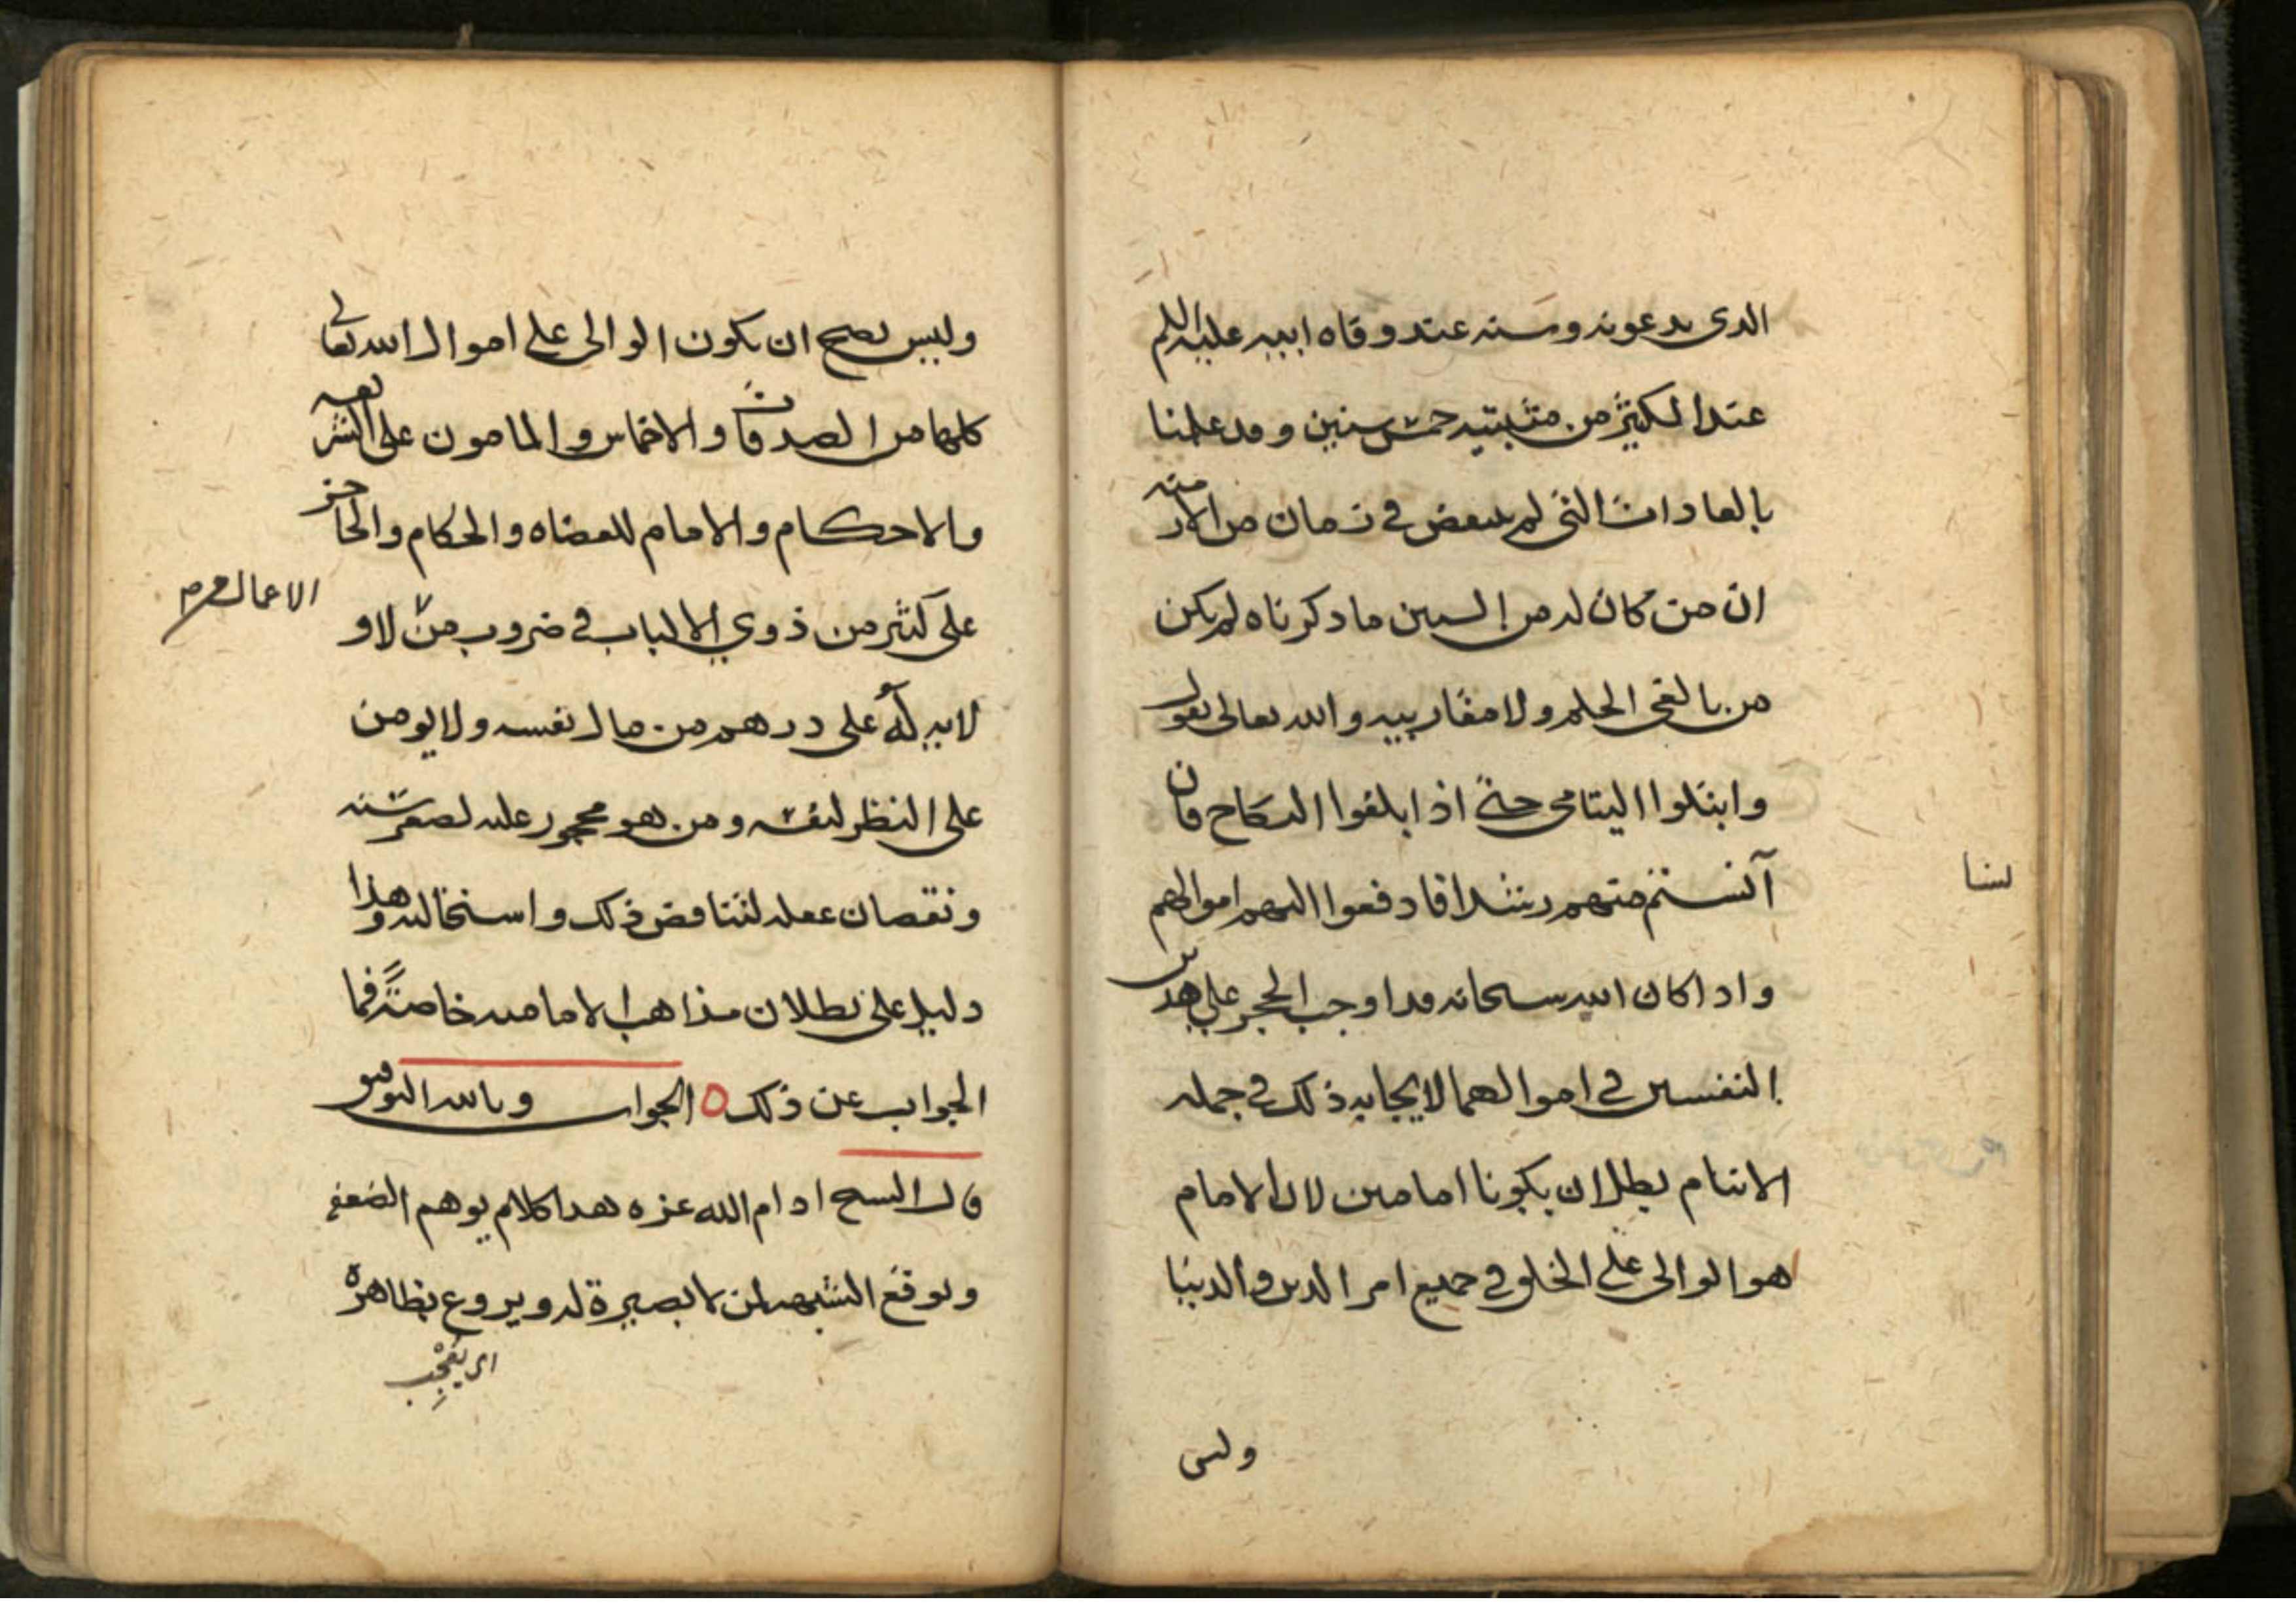 الدى يدعونه وسنه عند وفاه ابيه عليه السلم
عند الكثير من مثبتيه خمس سنين وقد علمنا
بالعادات التى لم تنتقض فى زمان من الازمنه
ان من كان له من السنين ما دكرناه لم يكن
من بالغى الحلم ولا مقاربيه والله تعالى يقول
وابتلوا اليتامى حتى اذا بلغوا النكاح فان
آنستم منهم رشدا فادفعوا اليهم اموالهم
لسنا
واداكان الله سبحانه قد اوجب الحجر على هدين
النفسين فى اموالهما لايجابه ذلك فى جمله
الايتام بطل ان يكونا امامين لان الامام
هو الوالى على الخلق فى جميع امر الدين والدنيا
وليس
وليس يصح ان يكون الوالى على اموال الله تعالى
كلها من الصدقات والاخماس والمامون على الشريعه
والاحكام والامام للقضاه والحكام والحاجز
على كثير من ذوي الالباب فى ضروب من لا و
الاعمال م
لايه له على درهم من مال نفسه ولا يومن
على النظر لنفسه ومن هو محجور عليه لصغر سنه
ونقصان عقله لتناقض ذلك واستحالته وهذا
دليل على بطلان مذاهب الامامیه خاصة فما
الجواب عن ذلك ٥ الجواب وبالله التوفيق
قال الشيخ ادام الله عزه هدا كلام يوهم الضعفه
ويوقع الشبهه لمن لا بصيرة له ويروع بظاهره
اى يعجب